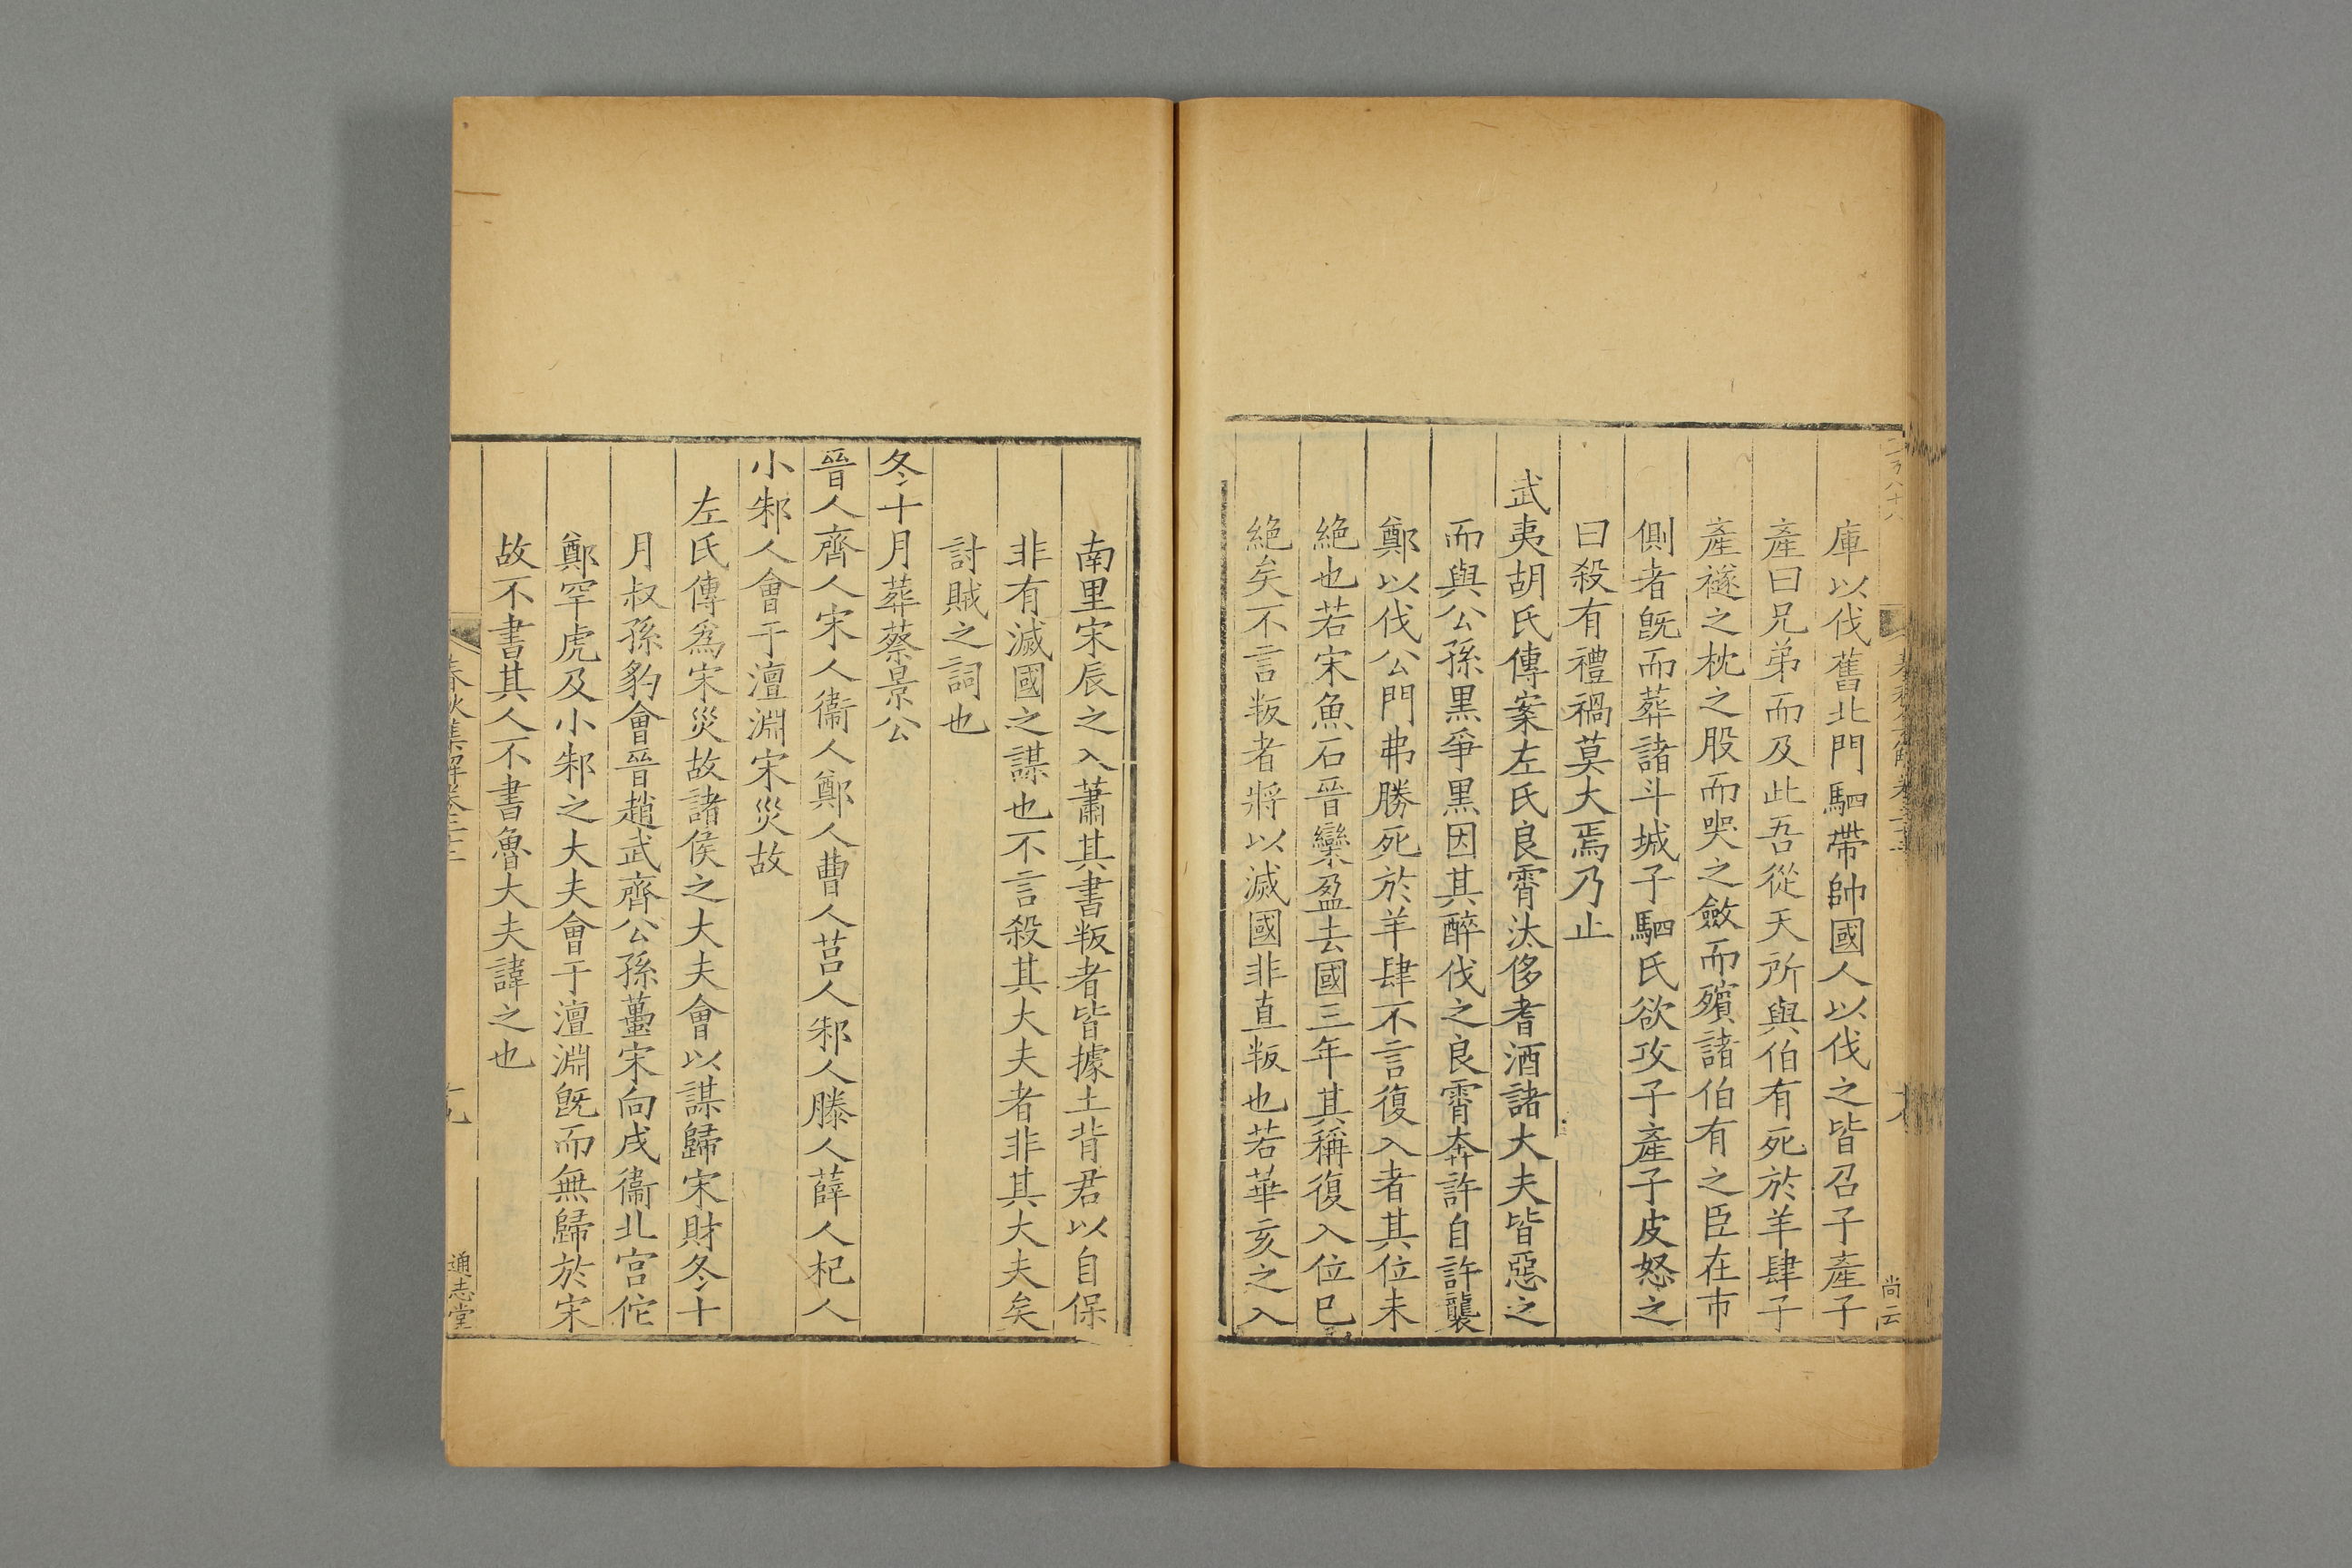 庫以伐舊北門駟帶帥國人以伐之皆召子產子
產曰兄弟而及此吾從天所與伯有死於羊肆子
產襚之枕之股而哭之斂而殯諸伯有之臣在市
側者旣而葬諸斗城子駟氏欲攻子產子皮怒之
曰殺有禮禍莫大焉乃止
武夷胡氏傳案左氏良霄汰侈耆酒諸大夫皆惡之
而與公孫黑爭黑因其醉伐之良霄奔許自許襲
鄭以伐公門弗勝死於羊肆不言復入者其位未
絕也若宋魚石晉欒盈去國三年其稱復入位巳
絕矣不言叛者將以滅國非直叛也若華亥之入
南里宋辰之入蕭其書叛者皆據土背君以自保
非有滅國之謀也不言殺其大夫者非其大夫矣
討賊之詞也
冬十月葬蔡景公
晉人齊人宋人衞人鄭人曹人莒人邾人滕人薛人杞人
小邾人會于澶淵宋災故
左氏傳爲宋災故諸侯之大夫會以謀歸宋財冬十
月叔孫豹會晉趙武齊公孫蠆宋向戌衞北宮佗
鄭罕虎及小邾之大夫會于澶淵旣而無歸於宋
故不書其人不書魯大夫諱之也
春秋集解卷二十二
十九
通志堂
尚云